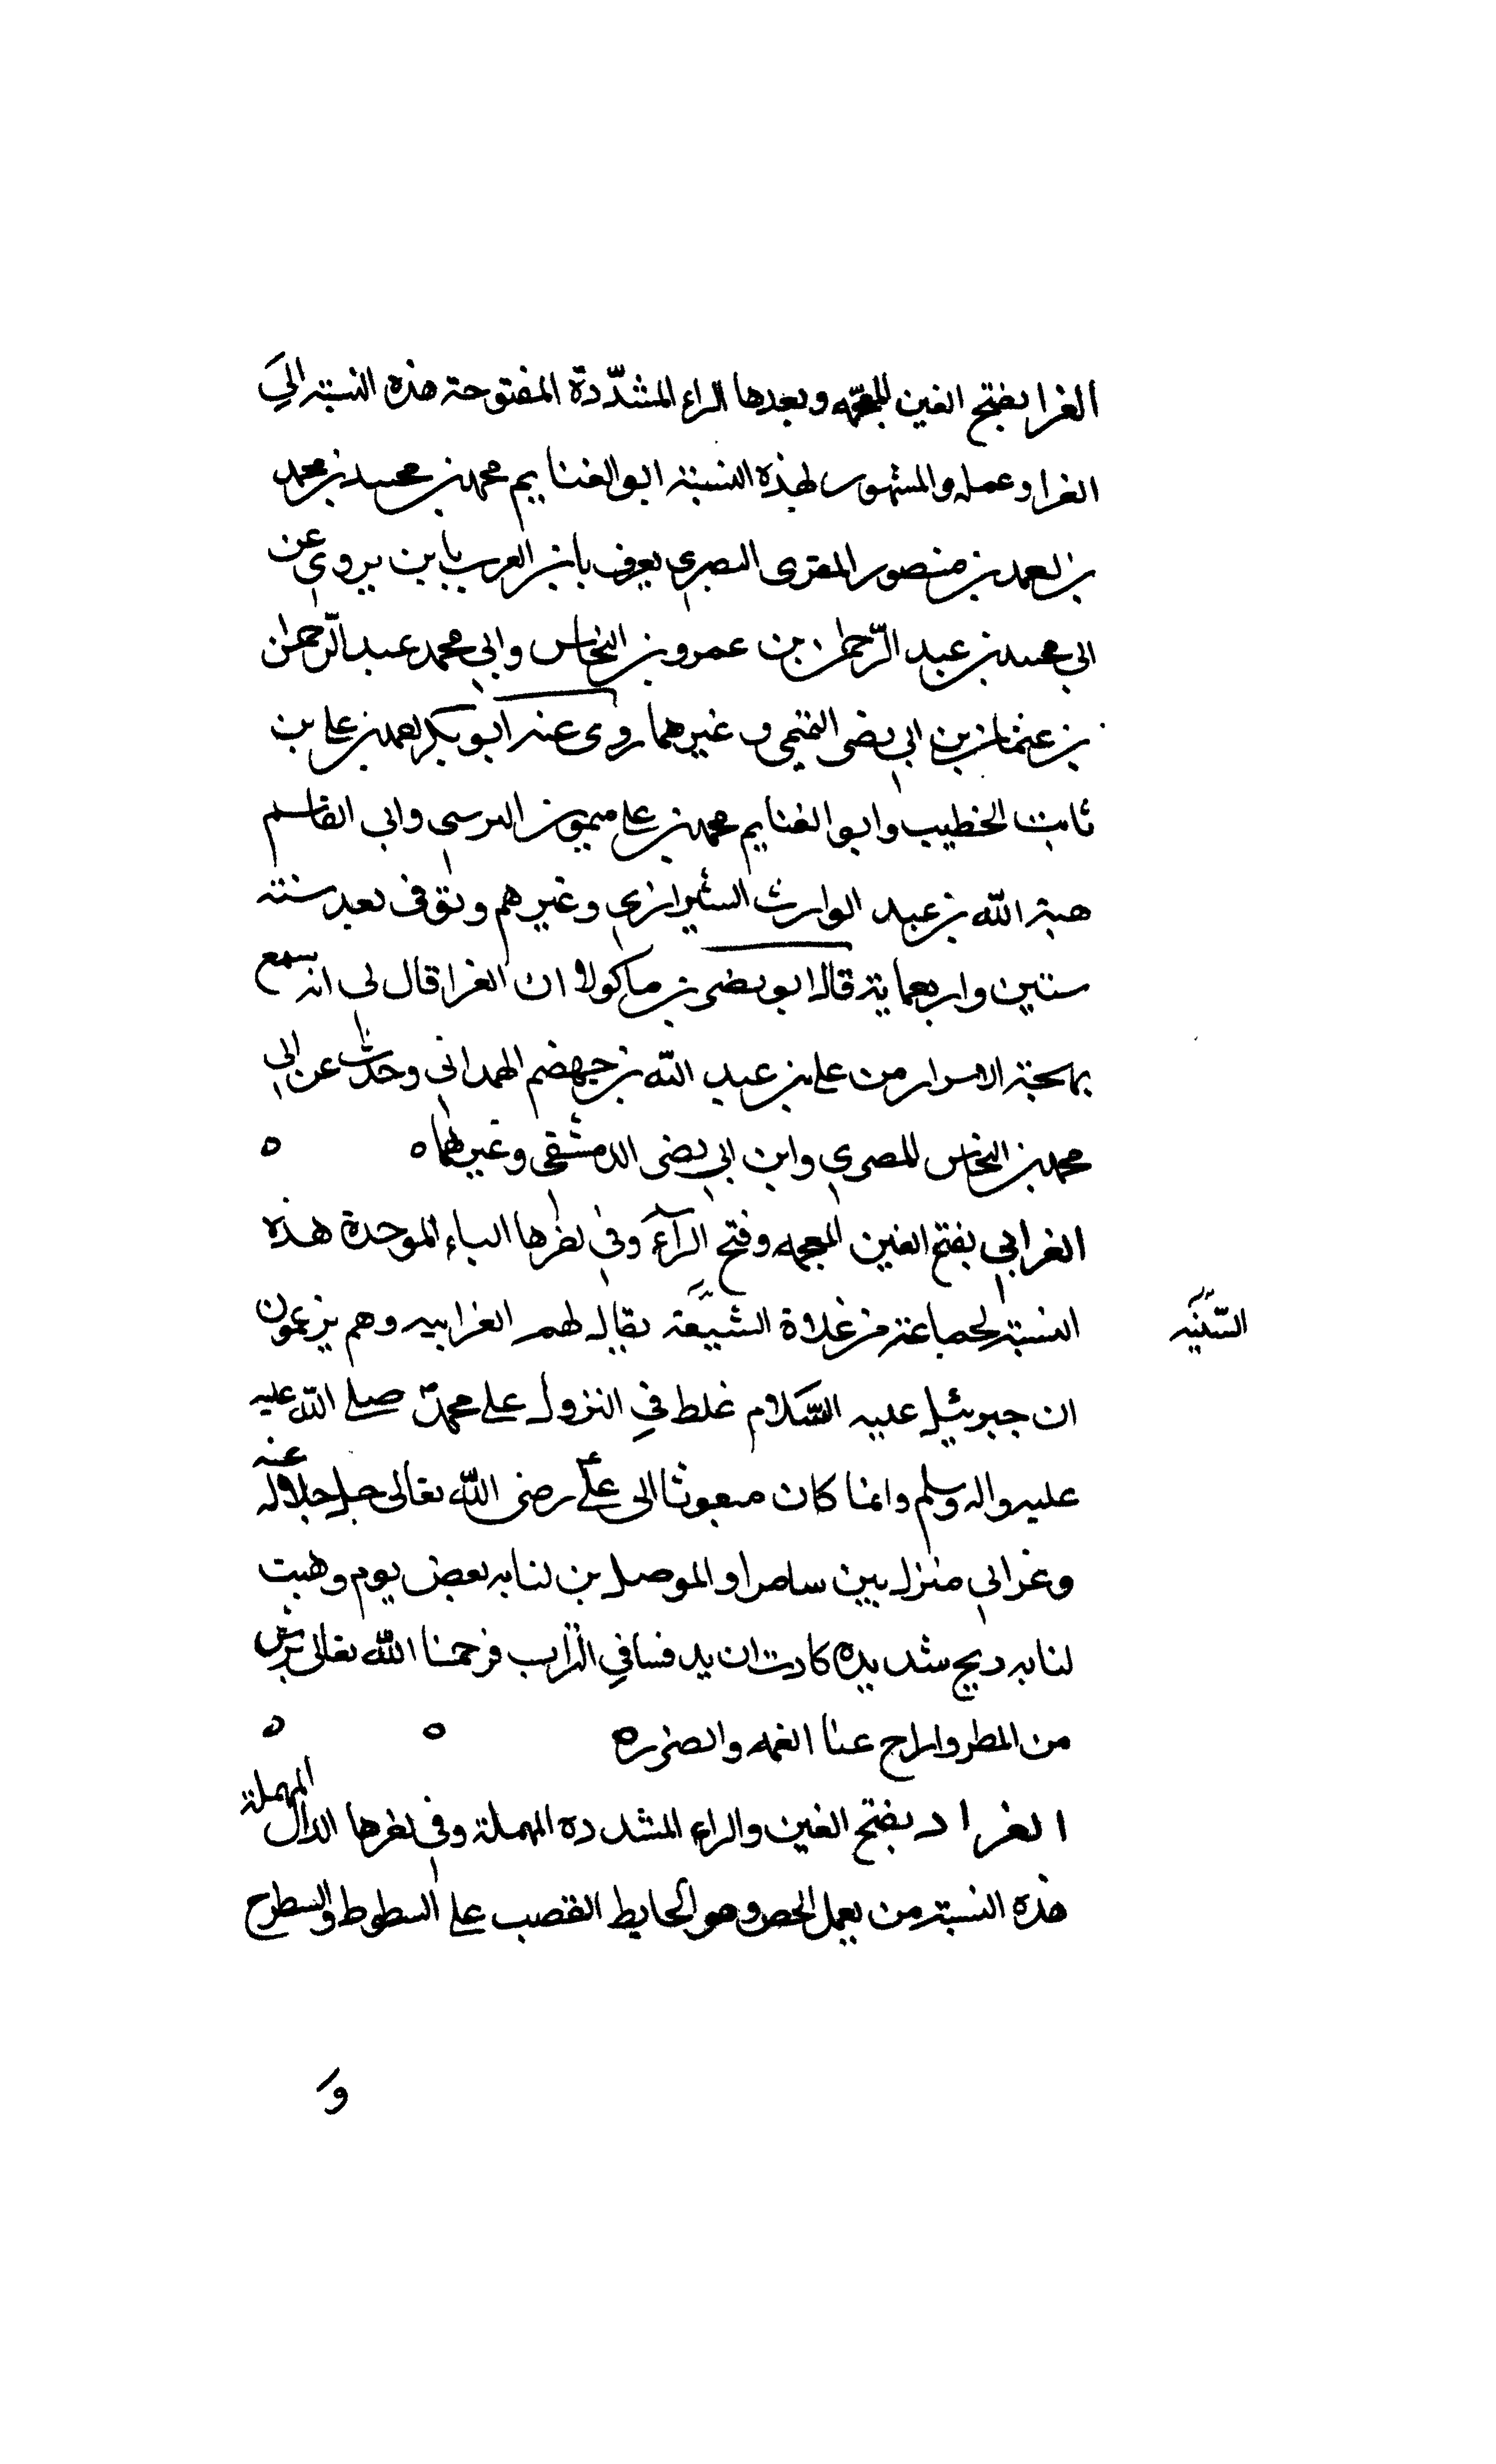 الغرا بفتح الغين المعجمه وبعدها الراء المشدّدة المفتوحة هذه النسبة الى
الغرا وعمله والمشهور بهذه النسبة ابو الغنايم محمد بن محمد بن محمد
بن احمد بن منصور المقرى البصري يعرف بابن الغرا يروى عن
ابي محمد بن عبد الرّحمن بن عمرو بن النحاس وابي محمد عبد الرّحمن
بن عثمان بن ابي نصر التميمى وغيرهما روى عنه ابو بكر احمد بن على بن
ثابت الخطيب وابو الغنايم محمد بن على ميمون النرسى وابي القاسم
هبة الله بن عبد الوارث الشيرازى وغيرهم وتوفى بعد سنة
ستين واربعماية قال ابو نصر بن ماكولا ان الغرا قال لى انه سمع
بهجة الاسرار من على بن عبد الله بن جهضم الهمدانى وحدّث عن ابى
محمد بن النحاس المصري وابن ابي نصر الدمشقى وغيرهما ه ه
الغرابي بفتح الغين المعجمه وفتح الرآء وفي اخرها الباء الموحدة هذه
النسبة لجماعة من غلاة الشيعة يقال لهم الغرابيه وهم يزعمون
ان جبرئيل عليه السّلام غلط في النزول على محمد صلى اللّه عليه
عليه واله وسلم وانما كان مبعوثا الى علىّ رضى اللّه تعالى عنه جل جلاله
وغرابى منزل بين سامرا والموصل بن لنا به بعض يوم وهبت
لنا به ريح شديده كادت ان يدفسا في التراب فرحمنا اللّه تعالى برش
من المطر وازاح عنا الغمه والضره ه ه
الغراد بفتح الغين والراء المشدده المهملة وفى اخرها الدال المهملة
هذه النسبة من يعمل الخص وهو الحايط القصب على السطوط والسطوح
وَ